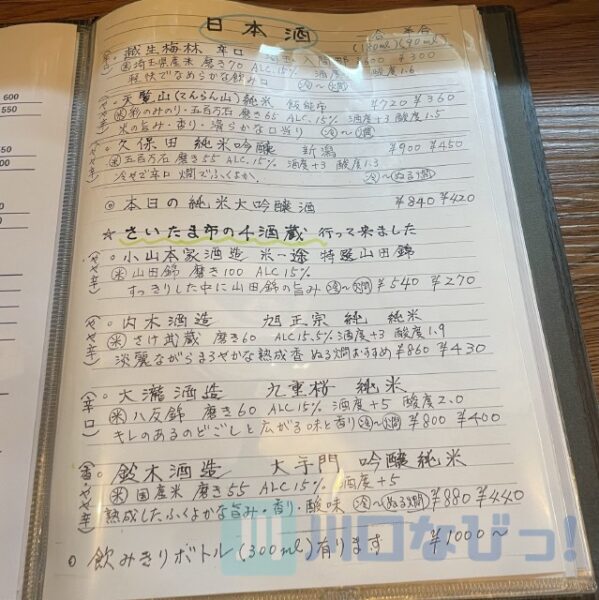 600
550
50
50
日本酒
合 半合
(180ml)(90ml)
(辛口)
・越生梅林 辛口 ¥600 ¥300
㊍埼玉県産米 磨き70 ALC.15% 酸度1.6
軽快でなめらかな飲み口 冷〜燗
(やや辛)
・天覧山(てんらん山)純米 飯能市 ¥720 ¥360
米 彩のみのり・五百万石 磨き65 ALC.15% 酒度+3 酸度1.5
米の旨み・香り・清らかな口当り 冷〜燗
(やや辛)
・久保田 純米吟醸 新潟 ¥900 ¥450
米 五百万石 磨き55 ALC.15% 酒度+3 酸度1.3
冷やで辛口 燗でふくよか。 冷〜ぬる燗
◎本日の純米大吟醸酒 ¥840 ¥420
☆さいたま市の4酒蔵 行って来ました
(やや辛)
・小山本家酒造 米一途 特選山田錦
米 山田錦 磨き100 ALC15%
すっきりした中に山田錦の旨み 冷〜燗 ¥540 ¥270
(やや辛)
・内木酒造 旭正宗 純 純米
米 さけ武蔵 磨き60 ALC15.5% 酒度+3 酸度1.9
淡麗ながらまろやかな熟成香 ぬる燗おすすめ ¥860 ¥430
(辛口)
・大瀧酒造 九重桜 純米
米 八反錦 磨き60 ALC15% 酒度+5 酸度2.0
キレのあるのどごしと広がる味と香り 冷〜燗 ¥800 ¥400
(香・やや辛)
・鈴木酒造 大手門 吟醸純米
米 国産米 磨き55 ALC15% 酒度+5
熟成したふくよかな旨み・香り・酸味 冷〜ぬる燗 ¥880 ¥440
・飲みきりボトル(300ml)有ります ¥1000〜
川口なびっ!